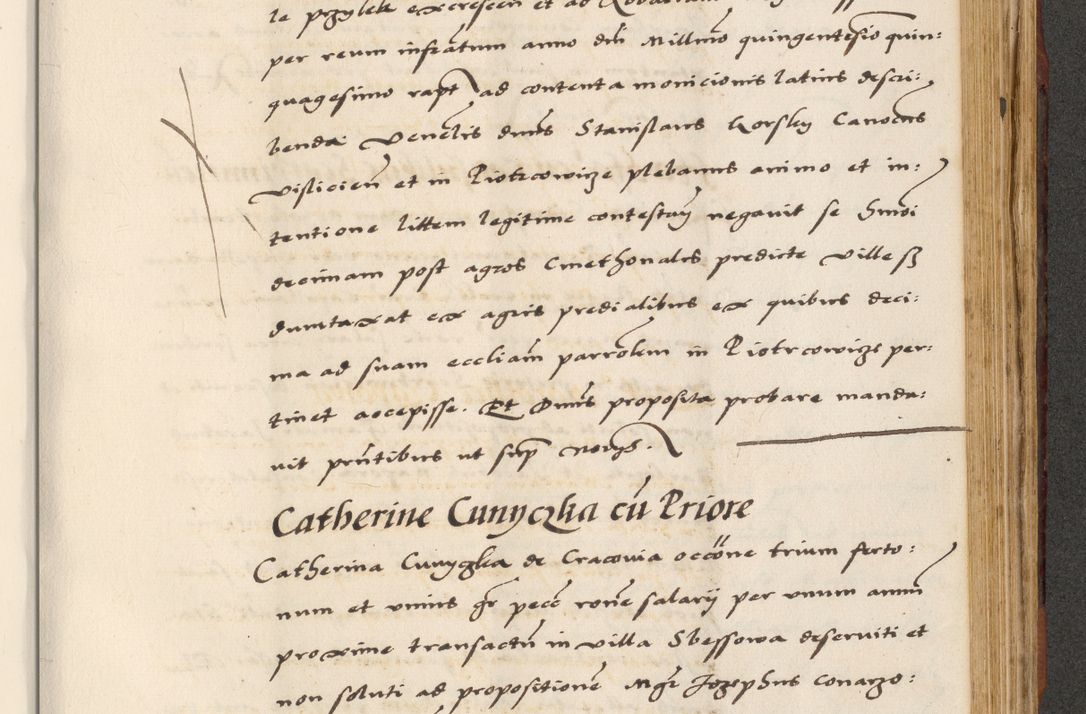 per reum infratum anno dni Millmo quingentesio quin:
quagesimo rapt ad contenta monicionis latius descri:
benda Venelis dnus Stanislaus Korsky Canocus
Vislicien et in Piotrcowicze plebanus animo et in:
tentione littem legitime contestan negavit se hmoi
decimam post agros Cmethonales predicte Ville sz
duntaxat ex agris predialibus ex quibus deci:
ma ad suam eccliam parrolem in Piotrcowicze per:
tinet accepisse. Et Omis proposita probare manda:
vit prntibus ut sup Nobis.
Catherine Cunyczka cū Priore
Catherina Cunyczka de Cracovia occōne trium ferto:
num et unius gr pecc rone salarij per unum annū
proxime transactū in villa Sbessowa deserviti et
non soluti ad propositionē Mgr Jozephus Conarzo: